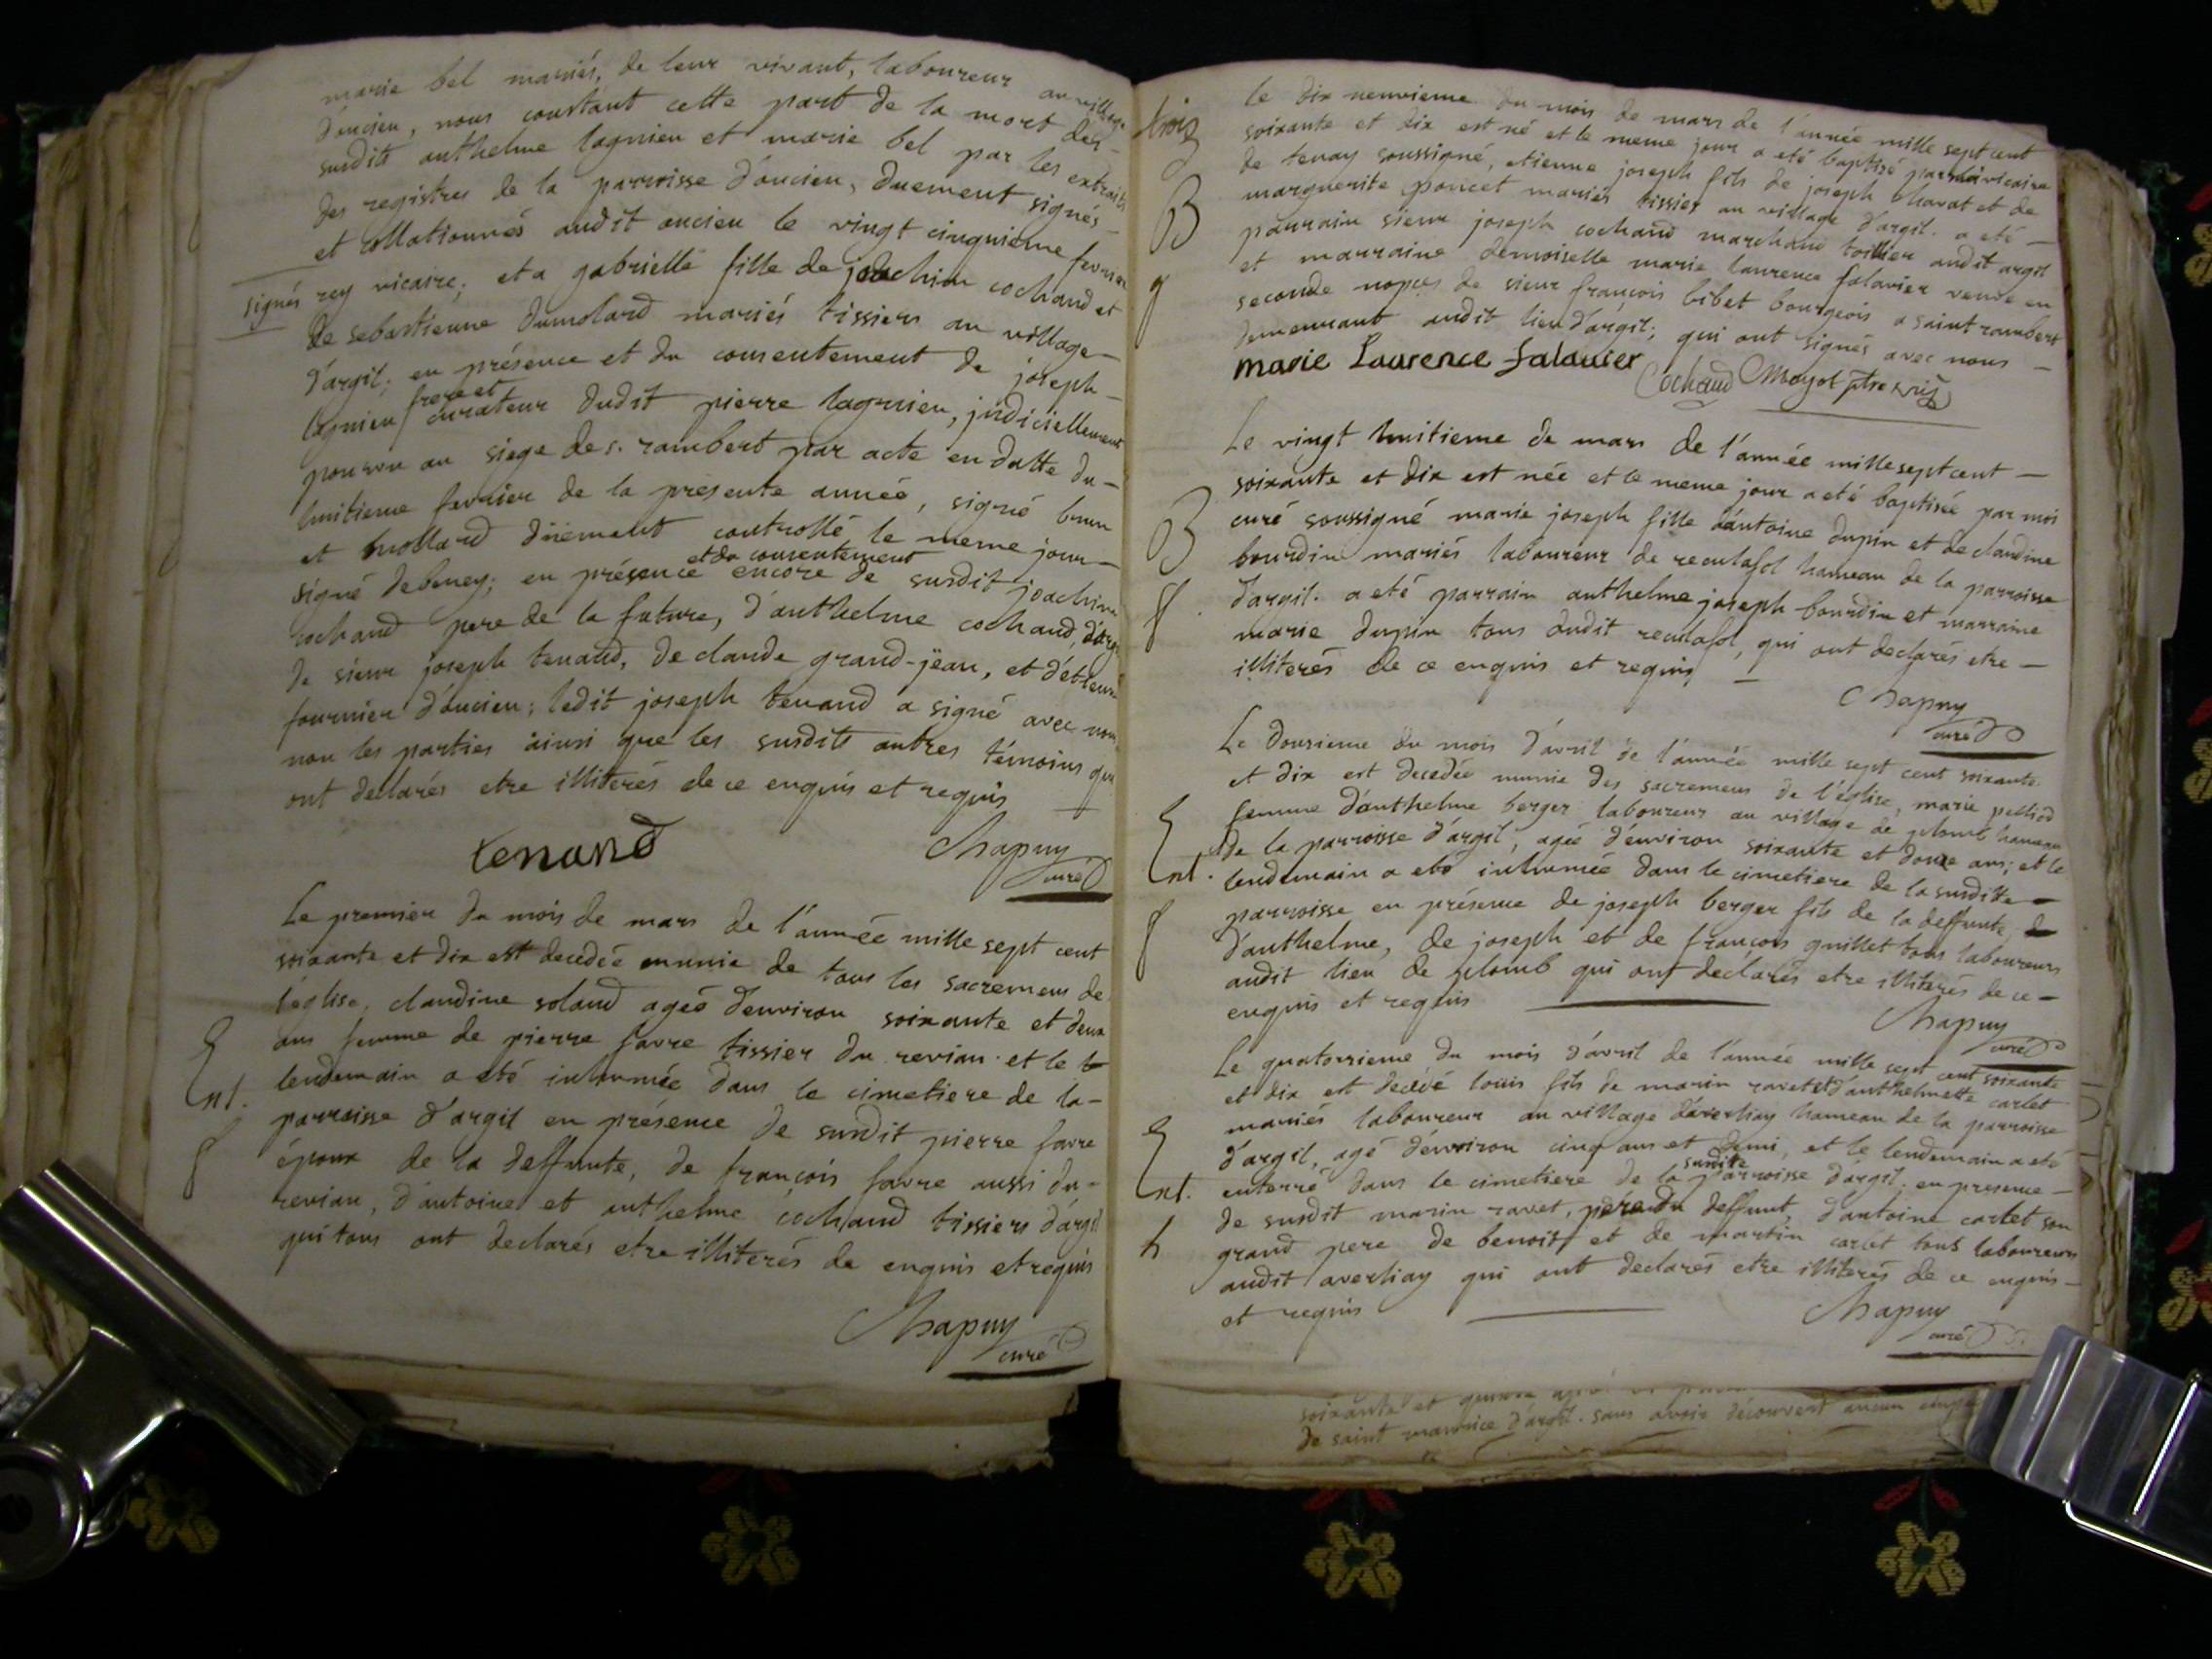 marie bel mariés, de leur vivant, laboureur au village
d'oncieu, nous constant cette part de la mort des-
susdits anthelme lagnieu et marie bel par les extraits
des registres de la parroisse d'oncieu, duement signés
et collationnés audit oncieu le vingt cinquieme fevrier
signés rey vicaire; et a gabrielle fille de joachim cochand et
de sebastienne dumolard mariés tissiers au village-
d'argil; en présence et du consentement de joseph-
frere et
lagnieu / curateur dudit pierre lagnieu, judiciellement
pourvu au siege de s. rambert par acte en datte du-
huitieme fevrier de la présente année, signé brun
et mollard düement controllé le meme jour-
et du consentement
signé debeney; en présence encore de susdit joachim
cochand pere de la future, d'anthelme cochand, d'argil
de sieur joseph tenand, de claude grand-jean, et d'etienne
fournier d'oncieu; ledit joseph tenand a signé avec nous
non les parties ainsi que les susdits autres témoins qui
ont declarés etre illiterés de ce enquis et requis
tenand
Chapuy
curé
Le premier du mois de mars de l'année mille sept cent
soixante et dix est decedée munie de tous les sacremens de
l'église, claudine soland ageé d'environ soixante et deux
ans femme de pierre favre tissier du revian. et le
lendemain a eté inhumée dans le cimetiere de la-
Ent.
parroisse d'argil en présence de susdit pierre favre
époux de la deffunte, de françois favre aussi du-
f
revian, d'antoine et anthelme cochand tissiers d'argil
qui tous ont declarés etre illiterés de enquis et requis
Chapuy
curé
trois
le dix neuvieme du mois de mars de l'année mille sept cent
soixante et dix est né et le meme jour a eté baptisé par vicaire
de tenay soussigné, etienne joseph fils de joseph chavat et de
B
marguerite poncet mariés tissier au village d'argil. a eté-
parrain sieur joseph cochand marchand toillier audit argil
et marraine demoiselle marie laurence falavier veuve en
g
seconde nopces de sieur françois bibet bourgeois a saint rambert
demeurant audit lieu d'argil; qui ont signés avec nous-
marie Laurence falauier
Cochand Moyot ptre
Le vingt huitieme de mars de l'année mille sept cent-
soixante et dix est née et le meme jour a eté baptisée par moi
B
curé soussigné marie joseph fille d'antoine dupin et de claudine
bourdin mariés laboureur de reculafol hameau de la parroisse
f
d'argil. a eté parrain anthelme joseph bourdin et marraine
marie dupin tous dudit reculafol, qui ont declarés etre-
illiterés de ce enquis et requis
Chapuy
curé
Le dousieme du mois d'avril de l'année mille sept cent soixante
et dix est decedée munie des sacremens de l'église, marie pelliod
femme d'anthelme berger laboureur au village de plomb hameau
de la parroisse d'argil, ageé d'environ soixante et douze ans; et le
Ent.
lendemain a eté inhumée dans le cimetiere de la susditte-
parroisse en présence de joseph berger fils de la deffunte,
f
d'anthelme, de joseph et de françois guillet tous laboureurs
audit lieu de plomb qui ont declarés etre illiterés de ce-
enquis et requis
Chapuy
curé
Le quatorsieme du mois d'avril de l'année mille sept cent soixante
et dix est decedé loüis fils de marin ravet et d'anthelmette carlet
mariés laboureur au village d'averliay hameau de la parroisse
d'argil, agé d'environ cinq ans et demi, et le lendemain a eté
susdite
Ent.
enterré dans le cimetiere de la parroisse d'argil. en presence-
de susdit marin ravet, pere du deffunt, d'antoine carlet son
h
grand pere de benoit et de martin carlet tous laboureurs
audit averliay qui ont declarés etre illiterés de ce enquis-
et requis
Chapuy
curé
soixante et
de saint maurice d'argil. sans avoir découvert aucun